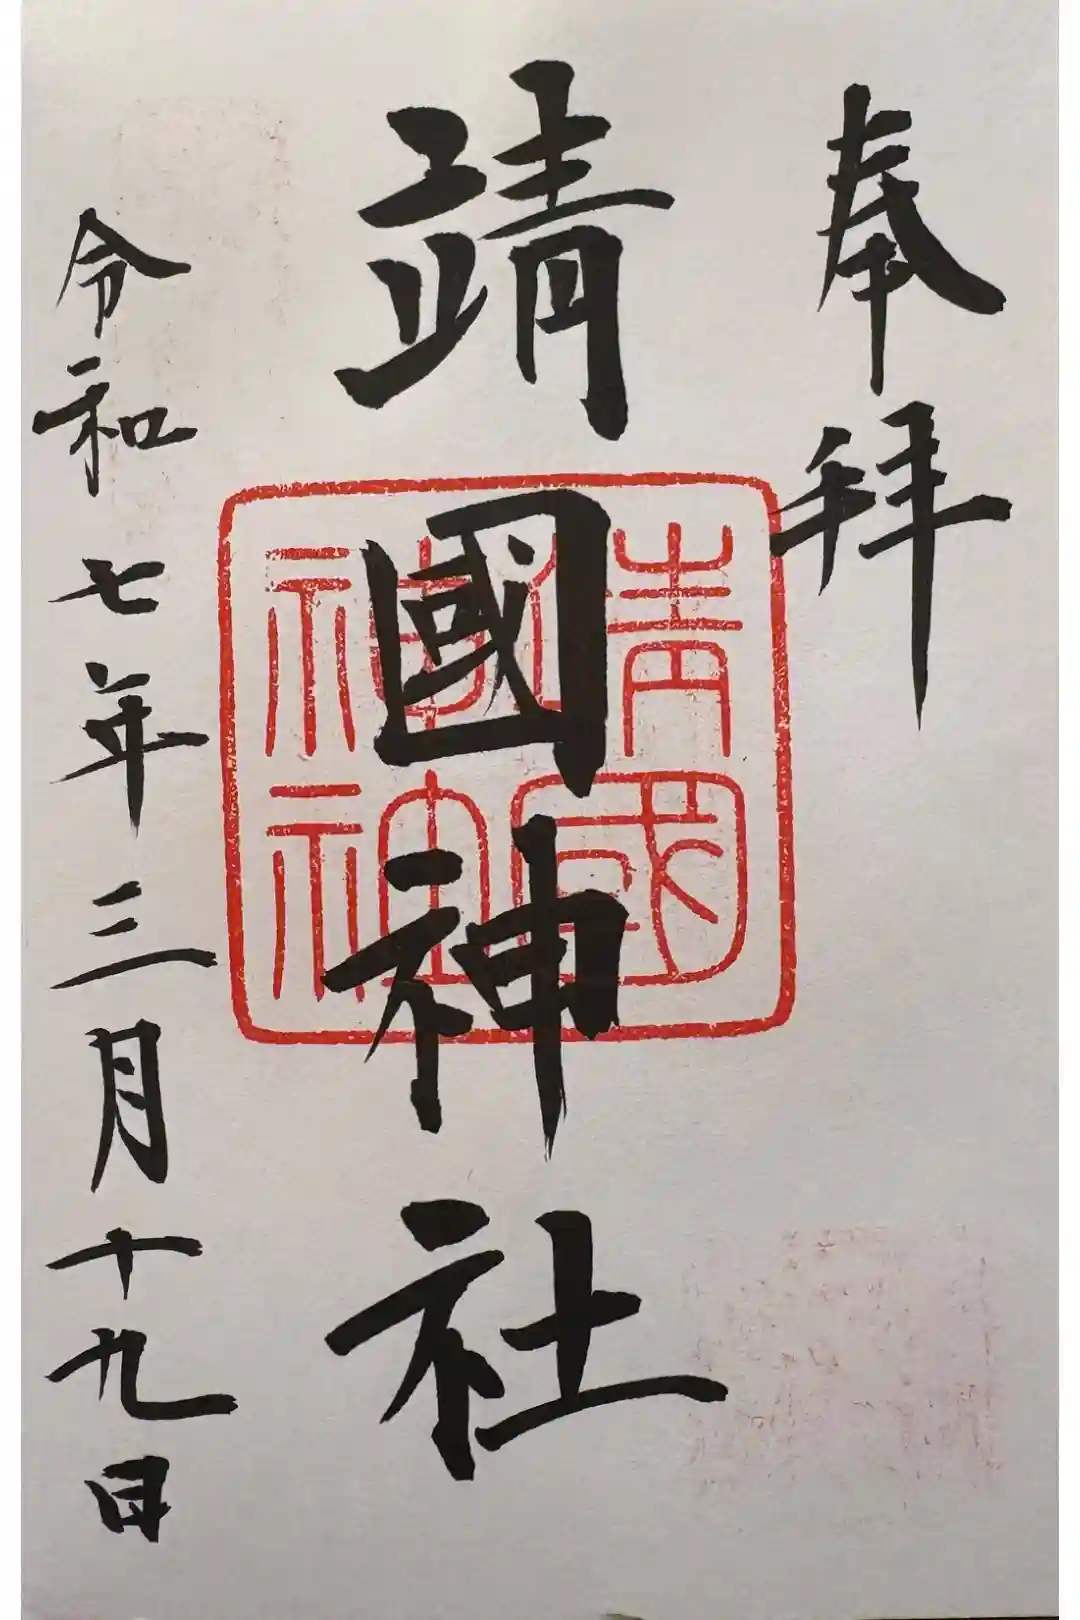 奉拝
靖國神社
靖國神社
令和七年三月十九日